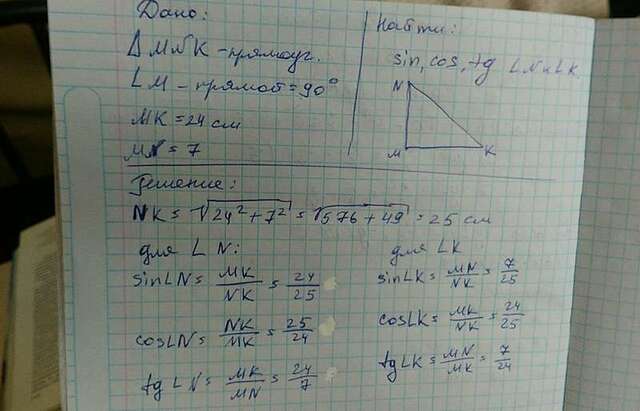 Дано:
Δ MNK - прямоуг.
∠M - прямой = 90°
MK = 24 см
MN = 7
Найти:
sin, cos, tg ∠N и ∠K.
N
M
K
Решение:
NK = √24² + 7² = √576 + 49 = 25 см
для ∠N:
sin∠N = MK/NK = 24/25
cos∠N = NK/MK = 25/24
tg∠N = MK/MN = 24/7
для ∠K
sin∠K = MN/NK = 7/25
cos∠K = MK/NK = 24/25
tg∠K = MN/MK = 7/24